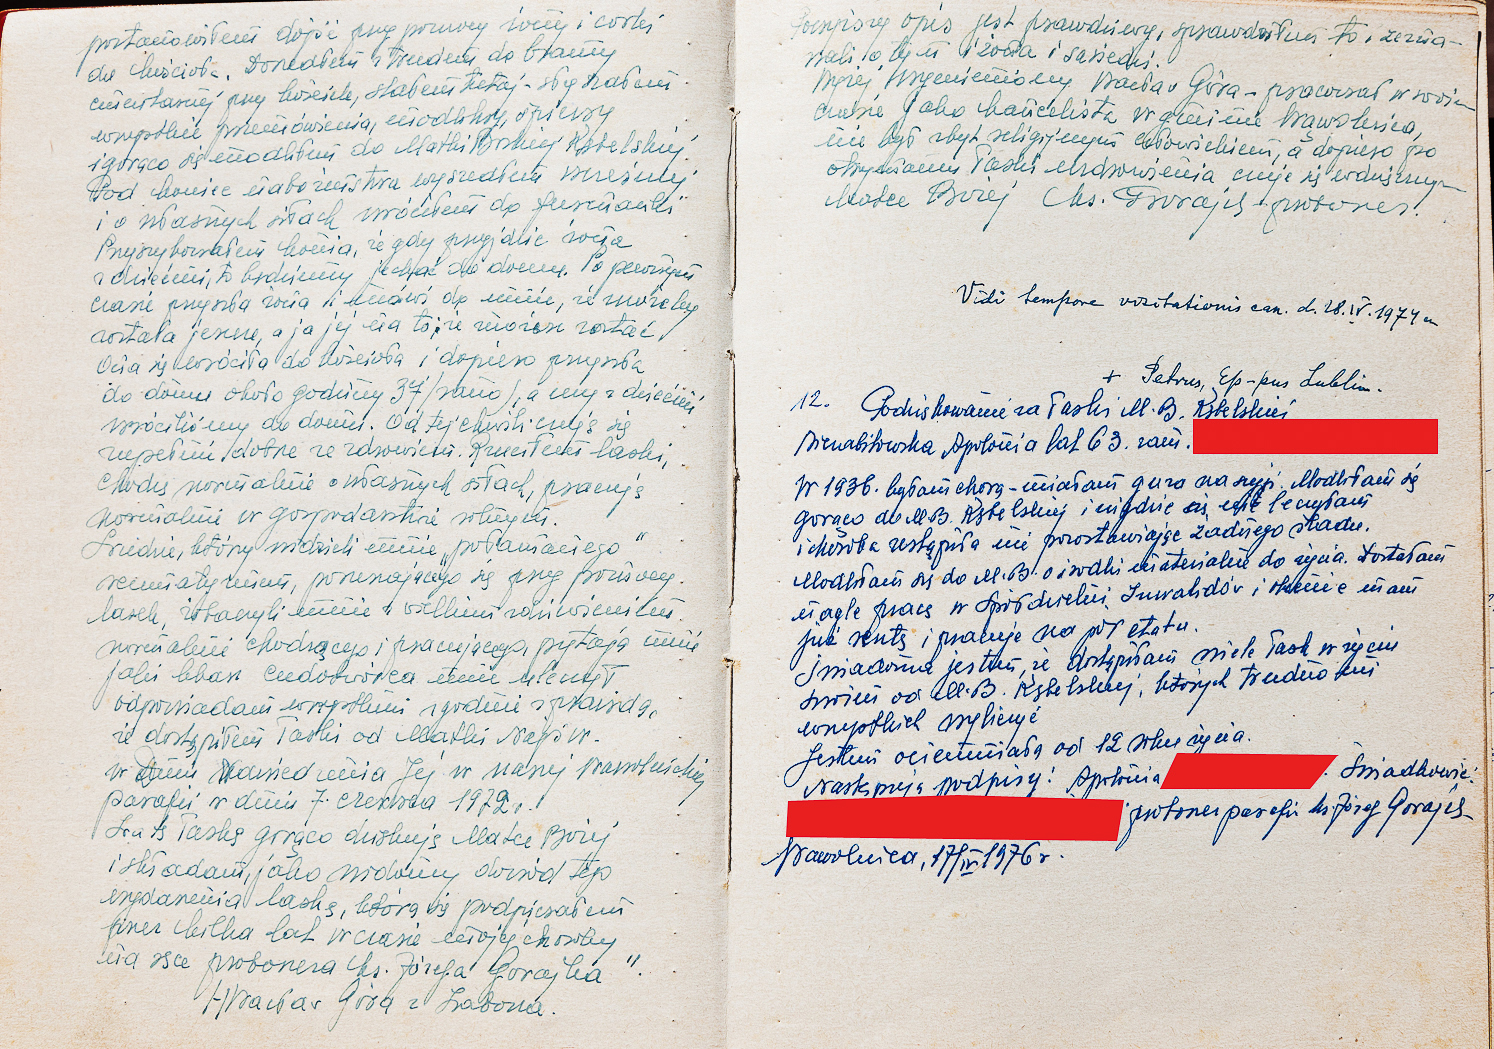 postanowiłem dojść przy pomocy żony i córki
do kościoła. Doszedłem z trudem do bramy
cmentarnej przy kościele, stałem tutaj - słyszałem
wszystkie przemówienia, modlitwy, śpiewy
i gorąco się modliłem do Matki Boskiej Kębelskiej.
Pod koniec nabożeństwa wyszedłem wcześniej
i o własnych siłach wróciłem do furmanki
Przyszykowałem konia, że gdy przyjdzie żona
z dziećmi, to będziemy jechać do domu. Po pewnym
czasie przyszła żona i mówi do mnie, że możeby
została jeszcze, a ja jej na to, że możesz zostać
Ona się wróciła do kościoła i dopiero przyszła
do domu około godziny 3ej /rano/, a my z dziećmi
wróciliśmy do domu. Od tej chwili czuję się
zupełnie dobrze ze zdrowiem. Rzuciłem laski,
chodzę normalnie o własnych siłach, pracuję
normalnie w gospodarstwie rolnym.
Ludzie, którzy widzieli mnie „połamanego"
reumatyzmem, poruszającego się przy pomocy
lasek, zobaczyli mnie z wielkim zdziwieniem
normalnie chodzącego i pracującego, pytają mnie
jaki lekarz cudotwórca mnie uleczył
odpowiadam wszystkim zgodnie z prawdą,
że dostąpiłem łaski od Matki Najśw.
w dniu Nawiedzenia Jej w naszej Wawolnickiej
parafii w dniu 7. czerwca 1972 r.
Za tę łaskę gorąco dziękuję Matce Bożej
i składam, jako widomy dowód tego
wydarzenia laskę, którą się podpierałem
przez kilka lat w czasie mojej choroby
na ręce proboszcza ks. Józefa Gorajka".
/-/ Wacław Góra z Ładona.
Powyższy opis jest prawdziwy, sprawdziłem to i zezna-
wali o tym i żona i sąsiedzi.
Wyżej wymieniony Wacław Góra - pracował w swoim
czasie jako kancelista w gminie Wąwolnica,
nie był zbyt religijnym człowiekiem, a dopiero po
otrzymaniu łaski uzdrowienia czuje się wdzięcznym
Matce Bożej Ks. Gorajek - proboszcz.
Vidi tempore visitationis can. d. 28.IV.1974 r.
+ Petrus, Ep-pus Lublin.
12. Podziękowanie za łaski M.B. Kębelskiej
Apolonia lat 63. zam.
W 1936. byłam chora - miałam guza na szyji. Modliłam się
gorąco do M.B. Kębelskiej i nigdzie się nie leczyłam
i choroba ustąpiła nie pozostawiając żadnego śladu.
Modliłam się do M.B. o środki materialne do życia. Dostałam
nagle pracę w Spółdzielni Inwalidów i obecnie mam
już rentę i pracuję na pół etatu.
Świadoma jestem, że dostąpiłam wiele łask w życiu
swoim od M.B. Kębelskiej, których trudno mi
wszystkich wyliczyć
Jestem ociemniała od 12 roku życia.
Następują podpisy: Apolonia . Świadkowie:
i proboszcz parafii ks. Józef Gorajek -
Wąwolnica, 17/IV 1976 r.